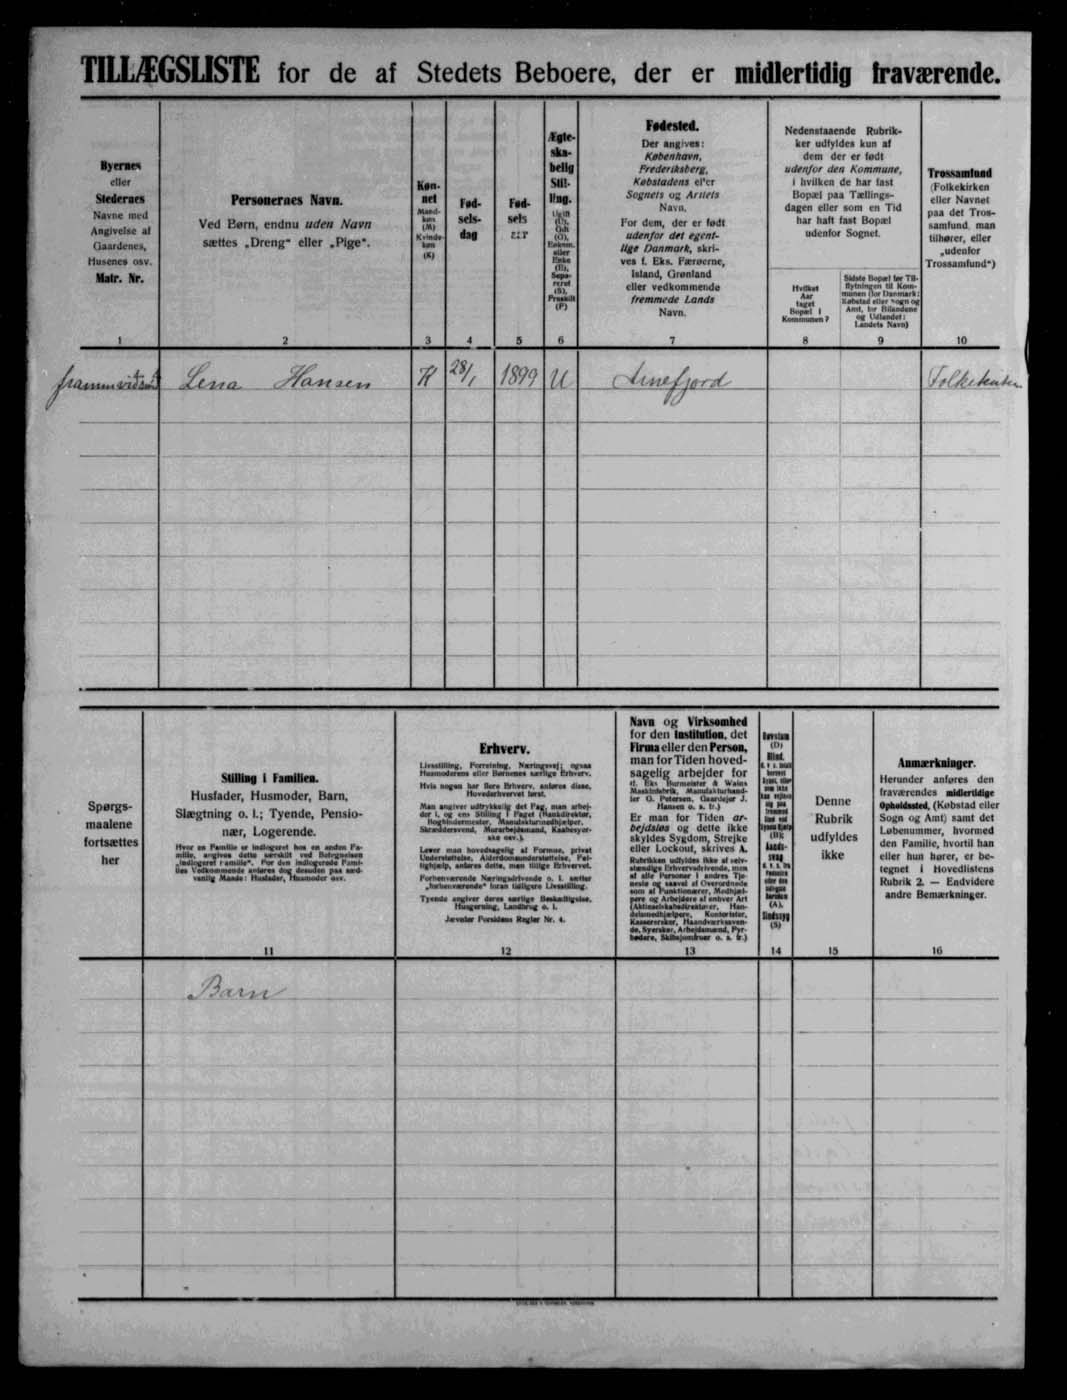 TILLÆGSLISTE for de af Stedets Beboere, der er midlertidig fraværende.
Byernes
eller
Stedernes
Navne med
Angivelse af
Gaardenes,
Husenes osv.
Matr. Nr.
1
Personernes Navn.
Ved Børn, endnu uden Navn
sættes „Dreng“ eller „Pige“.
2
Køn-
net
Mand-
køn
(M)
Kvinde-
køn
(K)
3
Fød-
sels-
dag
4
Fød-
sels
5
Ægte-
ska-
belig
Stil-
ling.
Ugift
(U),
Gift
(G),
Enkem.
eller
Enke
(E),
Sepa-
reret
(S),
Fraskilt
(F)
6
Fødested.
Der angives:
København,
Frederiksberg,
Købstadens eller
Sognets og Amtets
Navn.
For dem, der er født
udenfor det egent-
lige Danmark, skri-
ves f. Eks. Færøerne,
Island, Grønland
eller vedkommende
fremmede Lands
Navn.
7
Nedenstaaende Rubrik-
ker udfyldes kun af
dem der er født
udenfor den Kommune,
i hvilken de har fast
Bopæl paa Tællings-
dagen eller som en Tid
har haft fast Bopæl
udenfor Sognet.
Hvilket
Aar
taget
Bopæl i
Kommunen?
8
Sidste Bopæl før Til-
flytningen til Kom-
munen (for Danmark:
Købstad eller Sogn og
Amt, for Bilandene
og Udlandet:
Landets Navn)
9
Trossamfund
(Folkekirken
eller Navnet
paa det Tros-
samfund, man
tilhører, eller
„udenfor
Trossamfund“)
10
Lena Hansen K 28/1 1899 U Arnefjord
Spørgs-
maalene
fortsættes
her
Stilling i Familien.
Husfader, Husmoder, Barn,
Slægtning o. l.; Tyende, Pensio-
nær, Logerende.
Hvor en Familie er indlogeret hos en anden Fa-
milie, angives dette særskilt ved Betegnelsen
„indlogeret Familie“. For den indlogerede Fami-
lies Vedkommende anføres dog desuden paa sæd-
vanlig Maade: Husfader, Husmoder osv.
11
Erhverv.
Livsstilling, Forretning, Næringsvej; ogsaa
Husmoderens eller Børnenes særlige Erhverv.
Hvis nogen har flere Erhverv, anføres disse,
Hovederhvervet først.
Man angiver udtrykkelig det Fag, man arbej-
der i, og ens Stilling i Faget (Bankdirektør,
Bogbindermester, Manufakturmedhjælper,
Skræddersvend, Murarbejdsmand, Kaabesyer-
ske osv.).
Lever man hovedsagelig af Formue, privat
Understøttelse, Alderdomsunderstøttelse, Fat-
tighjælp, anføres dette, men tillige Erhvervet.
Forhenværende Næringsdrivende o. l. sætter
„forhenværende“ foran tidligere Livsstilling.
Tyende angiver deres særlige Beskæftigelse,
Husgerning, Landbrug o. l.
Jævnfør Forsidens Regler Nr. 4.
12
Navn og Virksomhed
for den Institution, det
Firma eller den Person,
man for Tiden hoved-
sagelig arbejder for
(f. Eks Burmeister & Wains
Maskinfabrik, Manufakturhand-
ler O. Petersen, Gaardejer J.
Hansen o. s. fr.)
Er man for Tiden ar-
bejdsløs og dette ikke
skyldes Sygdom, Strejke
eller Lockout, skrives A.
Rubrikken udfyldes ikke af selv-
stændige Erhvervsdrivende, men
af alle Personer i andres Tje-
neste og saavel af Overordnede
som af Funktionærer, Medhjæl-
pere og Arbejdere af enhver Art
(Aktieselskabsdirektører, Han-
delsmedhjælpere, Kontorister,
Kassererker, Haandværkssven-
de, Syersker, Arbejdsmænd, Fyr-
bødere, Skibsjomfruer o. s. fr.)
13
Døvstum
(D)
Blind,
(B);
Aands-
svag
(A),
Sindssyg
(S)
14
Denne
Rubrik
udfyldes
ikke
15
Anmærkninger.
Herunder anføres den
fraværendes midlertidige
Opholdssted, (Købstad eller
Sogn og Amt) samt det
Løbenummer, hvormed
den Familie, hvortil han
eller hun hører, er be-
tegnet i Hovedlistens
Rubrik 2. — Endvidere
andre Bemærkninger.
16
Barn